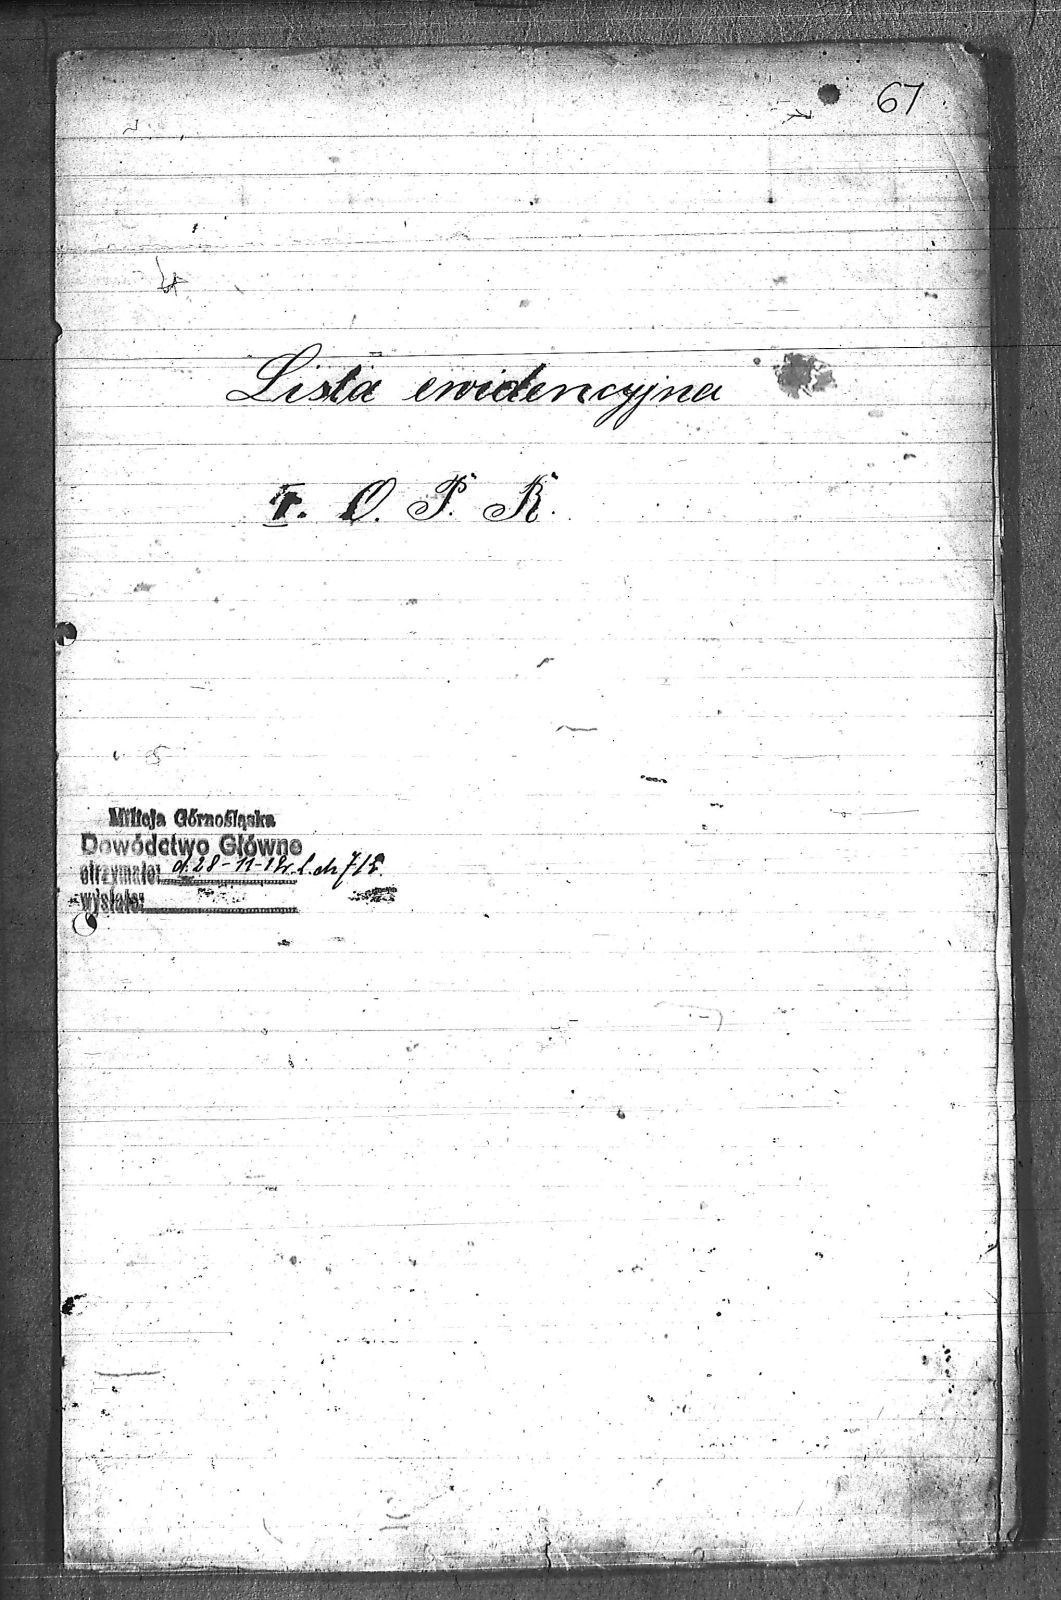 67
Lista ewidencyjna
O. P. K.
Milicja Górnośląska
Dowództwo Główne
otrzymało: d. 28-11-
wysłało: